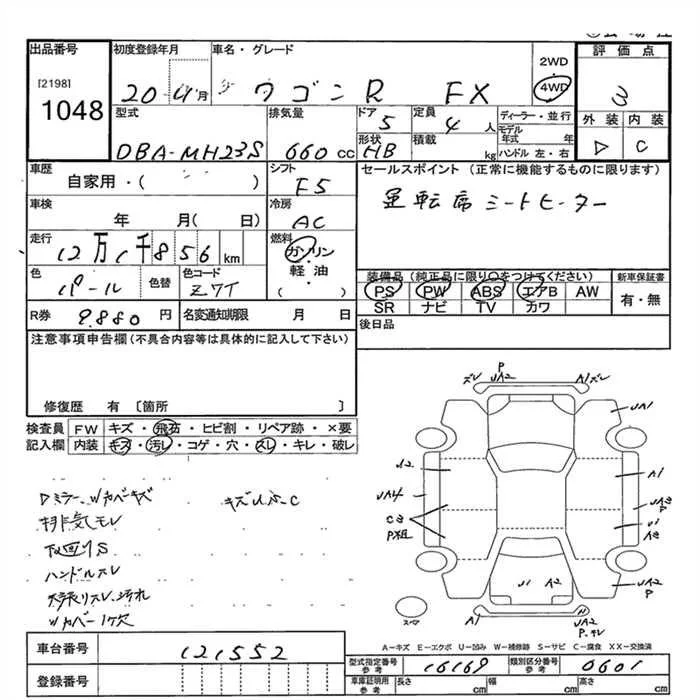 出品番号 初度登録年月 車名・グレード 評価点
[2198]
1048
20 - 4 月 ワゴンR FX 2WD 4WD 3
型式 排気量 ドア 定員 ディーラー・並行 外装 内装
DBA-MH23S 660 CC 5 4 人 モデル年式 年 C
形状 HB 積載 kg ハンドル 左・右
車歴 シフト セールスポイント (正常に機能するものに限ります)
自家用・( ) F5 運転席シートヒーター
車検 冷房
年 月( 日) AC
走行 燃料
12万1千856 km ガソリン
軽油
・( )
色 色替 色コード 装備品(純正品に限り○をつけてください) 新車保証書
パール Z7T PS PW ABS エアB AW 有・無
SR ナビ TV カワ
R券 9.880 円 名変通知期限 月 日 後日品
注意事項申告欄(不具合内容等は具体的に記入して下さい)
修復歴 有 〔箇所 〕
検査員 FW キズ・飛石・ヒビ割・リペア跡・×要
記入欄 内装 キズ・汚レ・コゲ・穴・スレ・キレ・破レ
排気モレ
下回りS
ハンドルスレ
ズレ P UA2 A1 ズレ
UA1
UA4
A1
A2
UA2 P
U1 A2
A1
UA2
スペア
A=キズ E=エクボ U=凹み W=補修跡 S=サビ C=腐食 XX=交換済
車台番号 121552
登録番号
型式指定番号 参考 16169 類別区分番号 参考 0601
車庫証明用 参考 長さ cm 幅 cm 高さ cm